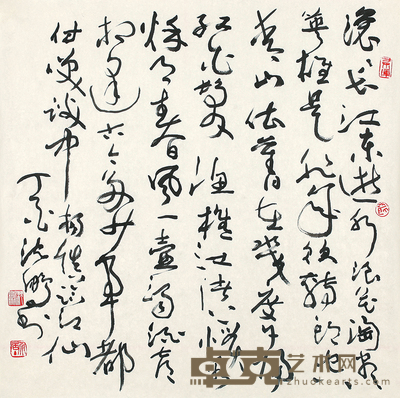 滚滚长江东逝水浪花淘尽
英雄是非成败转头空
青山依旧在几度夕阳
红白发渔樵江渚上惯
看秋月春风一壶浊酒喜
相逢古今多少事都
付笑谈中 杨慎临江仙
丁亥沈鹏书
卓克艺术网
zhuokearts.com